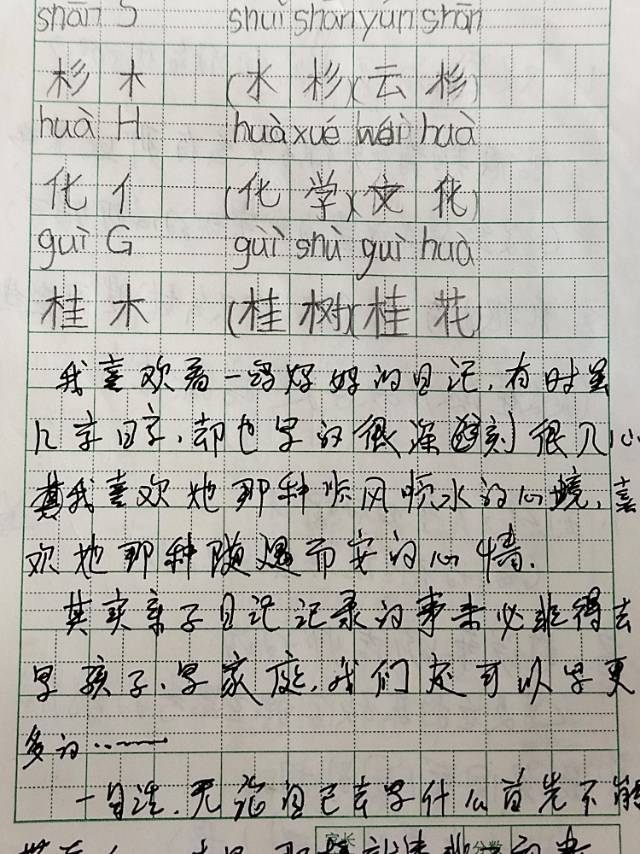 shān S shuǐ shān yún shān
杉 木 (水 杉)(云 杉)
huà H huà xué wén huà
化 亻 (化 学)(文 化)
guì G guì shù guì huā
桂 木 (桂 树)(桂 花)
我喜欢看一妈妈的日记,有时虽
几字日字,却也写的很深刻很入心
其我喜欢她那种顺风顺水的心境,喜
欢她那种随遇而安的心情.
其实亲子日记记录的事未必非得去
写孩子、写家庭,我们还可以写更
多的……
一直注,无论自己去写什么首先不能
家长
分数